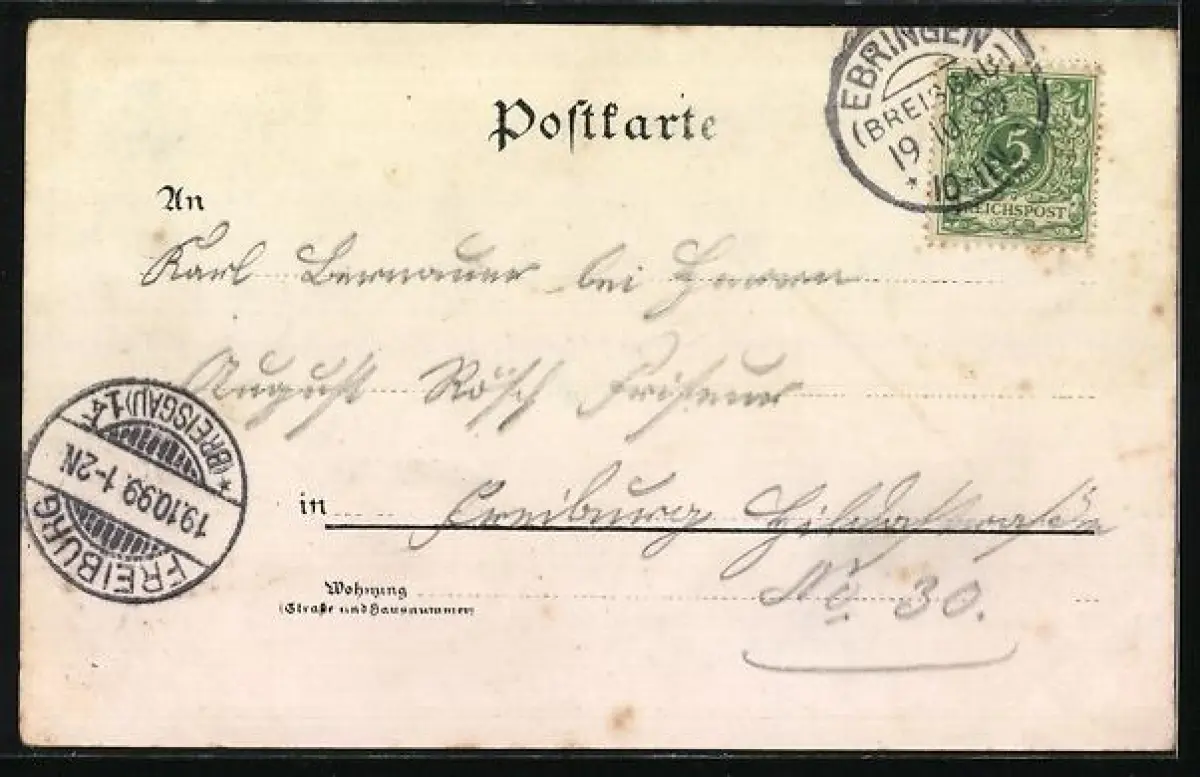 EBRINGEN
(BREISGAU)
19 10 99
* 10-11N.
5
REICHSPOST
Postkarte
An
Karl Bernauer bei Herrn
August Rösch Friseur
(BREISGAU) 1
19.10.99. 1-2N.
FREIBURG
in Freiburg Hildastraße
Wohnung
(Straße und Hausnummer)
No 30.